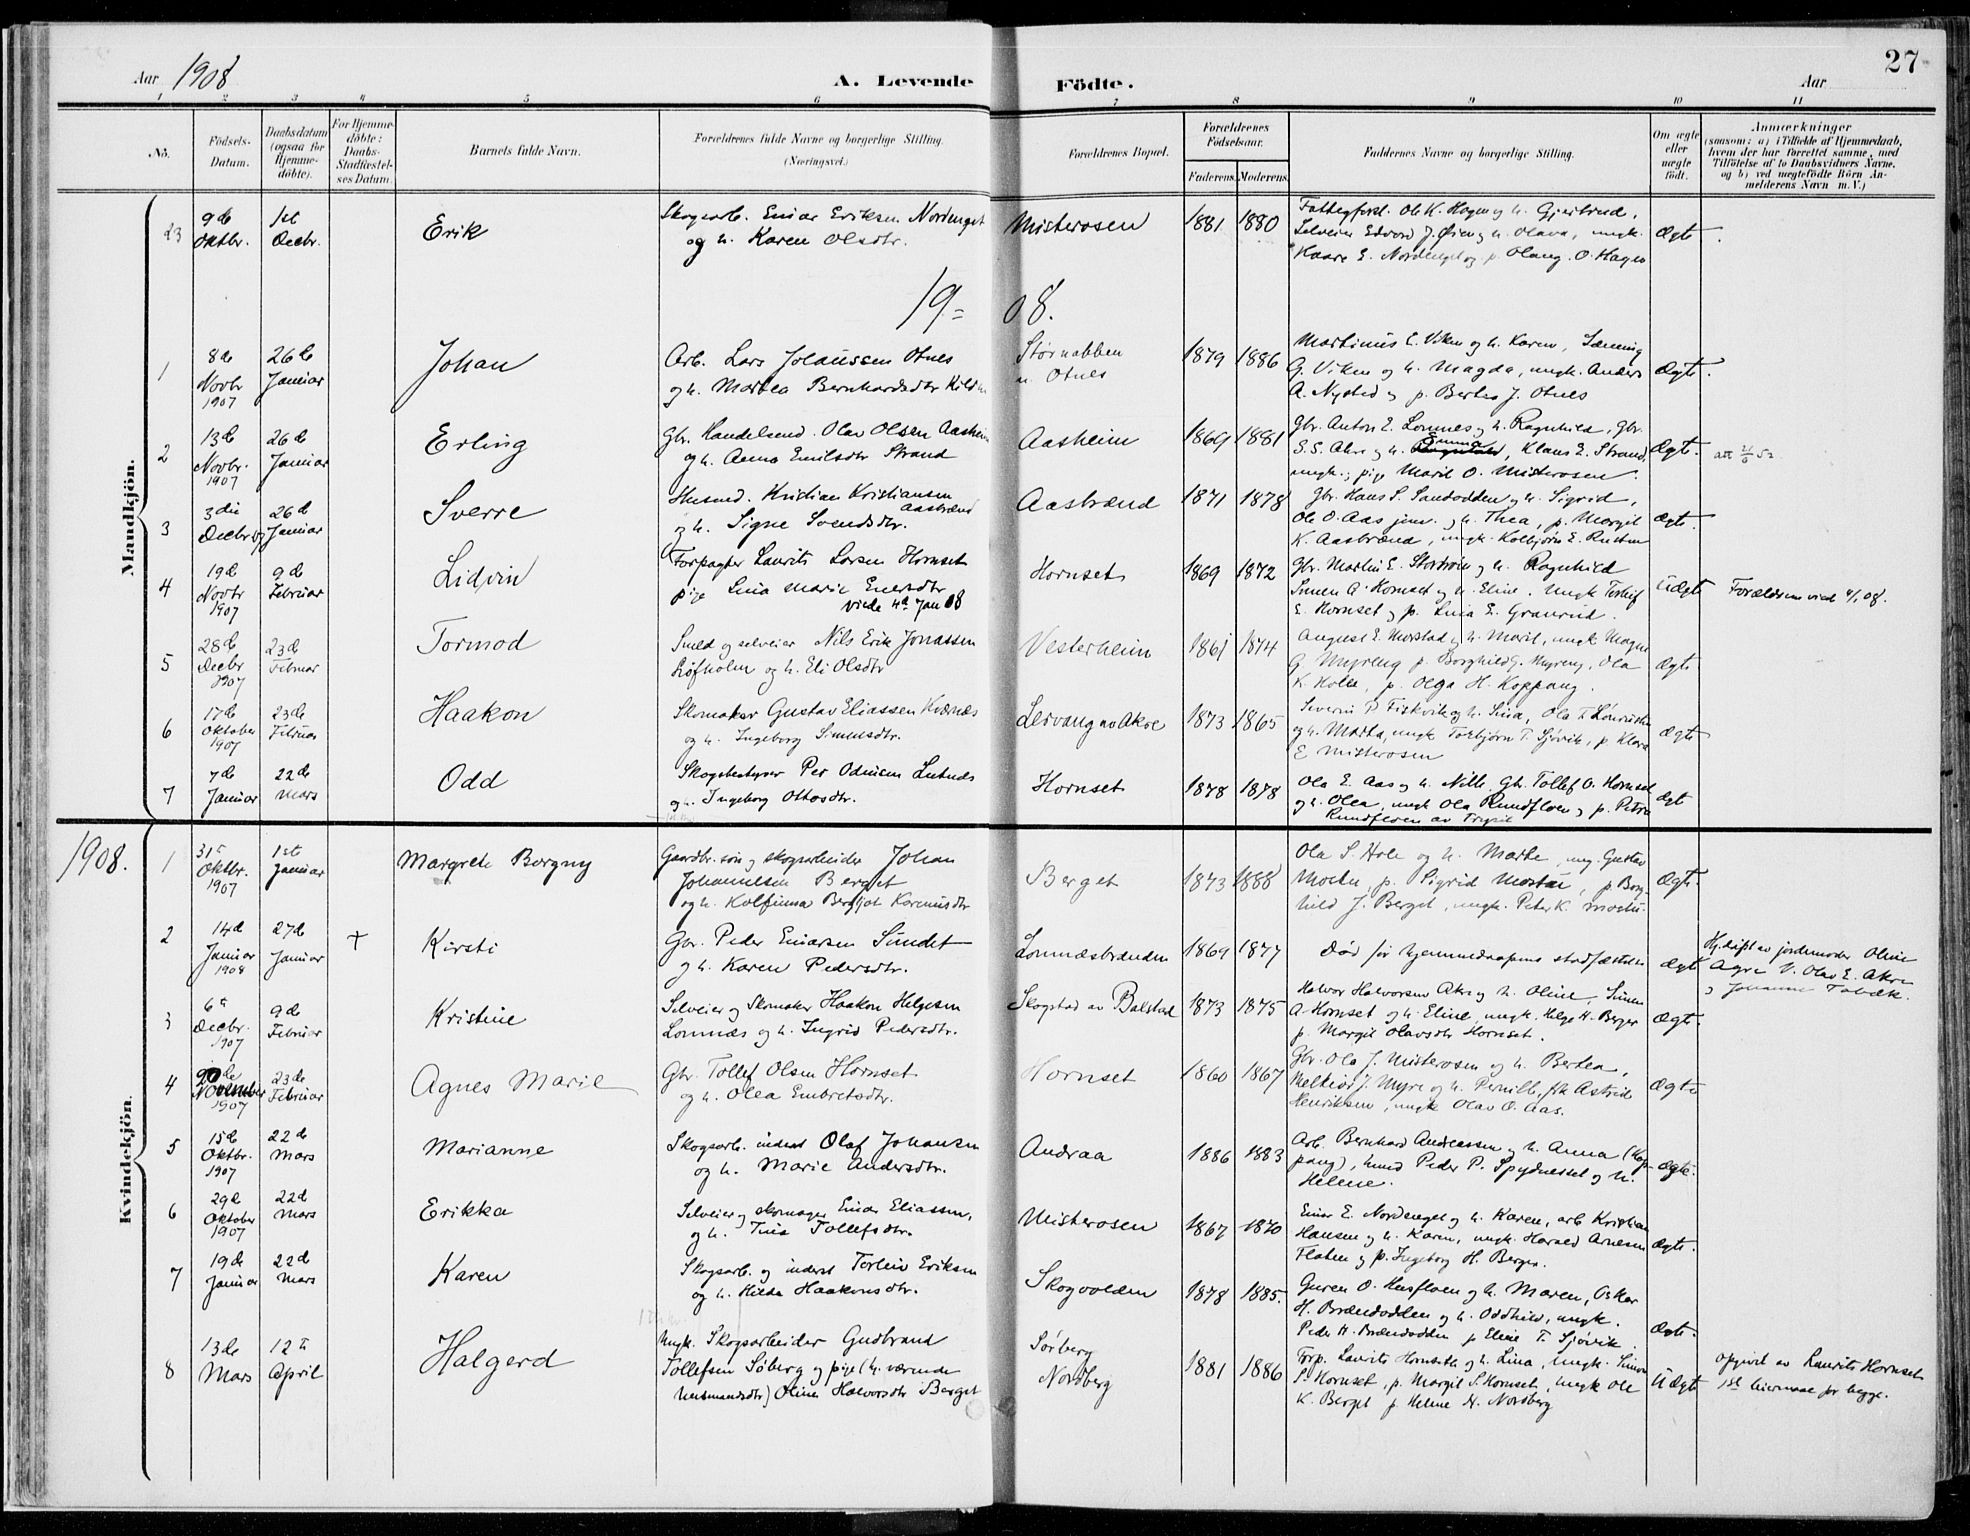 27
Aar 1908
A. Levende
Födte.
Aar
1 2 3 4 5 6 7 8 9 10 11
No.
Födsels-
Datum.
Daabsdatum
(ogsaa for
Hjemme-
döbte).
For Hjemme-
döbte:
Daabs-
Stadfæstel-
ses Datum.
Barnets fulde Navn.
Forældrenes fulde Navne og borgerlige Stilling.
(Næringsvei.)
Forældrenes Bopæl.
Forældrenes
Födselsaar.
Faderens. Moderens.
Faddernes Navne og borgerlige Stilling.
Om ægte
eller
uægte
födt.
Anmærkninger
(saasom: a) i Tilfælde af Hjemmedaab,
hvem der har forrettet samme, med
Tilföielse af to Daabsvidners Navne,
og b) ved uegtefödte Börn An-
melderens Navn m. V.)
Mandkjön.
23
9de
Oktbr.
1ste
Decbr.
Erik
Skogsarb. Einar Eriksen Nordenget
og h. Karen Olsdtr.
Misterosen
1881 1880
Hagen og h.
Selveier Edvard J. Øien og h. Olava, ungk.
Kaare E. Nordenget og p. Olaug. O. Hagen
Ægte.
19 = 08.
1
8de
Novbr
1907
26de
Januar
Johan
Arb. Lars Olaussen Otnes
og h. Martea Bernhardsdtr
Størnabben
u. Otnes
1879 1886
Martinius E. Viken og h. Karen,
G. Viken og h. Magda, ungk. Anders
A. Nysted og p. Bertea J. Otnes
Ægte.
2
13de
Novbr.
1907
26de
Januar
Erling
Gbr. Handelsmd. Olav Olsen Aasheim
og h. Anna Emilsdtr Strand
Aasheim
1869 1881
Gbr. Anton E. Lomnes og h. Ragnhild, Gbr.
S.S. Akre og h. Emma, Klaus E. Strand,
ungk., pige Marit O. Misterosen.
Ægte.
3
3die
Decbr 07
26de
Januar
Sverre
Husmd. Kristian Kristiansen
Aasbrænd
og h. Signe Svendsdtr.
Aasbrænd
1871 1878
Gbr. Hans S. Sandodden og h. Sigrid,
Ole O. Aas junr. og h. Thea, p. Margit
K. Aasbrænd, ungk. Kolbjørn E.
Ægte.
4
19de
Novbr
1907
9de
Februar
Lidvin
Forpagter Laurits Larsen Hornset
pige Lina Marie
viede 4de Jan 08
Hornset
1869 1872
Gbr. Martin E. og h. Ragnhild
Simen A. Hornset og h. Eline. Ungk
E. Hornset og p. Lina E. Granrud.
Uægte
Forældrene viede 4/1 08.
5
28de
Decbr
1907
23de
Februar
Tormod
Smed og selveier Nils Erik Jonassen
Løfholm og h. Eli Olsdtr
Vesterheim
1861 1874
August E. Morstad og h. Marit, ungk Magne
G. Myreng p. Borghild G. Myreng, Ola
K. Holte, p. Olga H. Koppang.
Ægte
6
17de
Oktober
1907
23de
Februar
Haakon
Skomaker Gustav Eliassen Kværnæs
og h. Ingeborg Simensdtr.
Akre
1873 1865
Severin P. Fiskvik og h. Lina, Ola T.
og h. Marta, ungk Torbjørn T. Sjøvik, p. Klara
E Misterosen
Ægte
7
7de
Januar
22de
Mars
Odd
Skogbestyrer Per
og h. Ingeborg Ottosdtr.
Hornset
1878 1878
Ola E. Aas og h. Nille. Gbr. Tollef O. Hornset
og h. Olea, ungk Ola Rundfloen og p. Petra
Rundfloen av Trysil
Ægte
Kvindekjön.
1908.
1
31te
Oktbr.
1907
1ste
Januar
Margrete Borgny
Gaardbr.søn og skogsarbeider Johan
Johannessen Berget
og h. Kolfinna Bergljot
Berget
1873 1888
Ola S. Hole og h. Marte, ung. Gustav
Moetn, p. Sigrid, p. Borg-
hild J. Berget, ungk. Peter K.
Ægte.
2
14de
Januar
1908
27de
Januar
+
Kirsti
Gbr. Peder Einarsen Sundet
og h. Karen Pedersdtr.
Lomnæsbrænden
1869 1877
Død før hjemmedaapens stadfæstelse
Ægte
Hj.døpt av jordemoder Oline
Agre V. Olav E. Akre
og Johanne
3
6te
Decbr.
1907
9de
Februar
Kristine
Selveier og Skomaker Haakon Helgesen
Lomnæs og h. Ingrid Pedersdtr.
Skogstad av Balstad
1873 1875
Halvor Halvorsen Akre og h. Oline, Simen
A. Hornset og h. Eline, ungk. Helge H. Berger
p. Margit Olavsdtr Hornset.
Ægte.
4
20de
November
1907
23de
Februar
Agnes Marie
Gbr. Tollef Olsen Hornset
og h. Olea Embretsdtr.
Hornset
1860 1867
Gbr. Ola J. Misterosen og h. Bertea,
Melkior J. Myre og h. Pernille, frk Astrid
Henriksen, ungk Olav O. Aas.
Ægte
5
15de
Oktbr.
1907
22de
Mars
Marianne
Skogsarb. inderst Olaf Johansen
og h. Marie Andersdtr.
Andraa
1886 1883
Arb. Bernhard Andreassen og h. Anna (Kop-
pang), husmd Peder P. Spydnesset og h.
Helene.
Ægte.
6
29de
Oktober
1907
22de
Mars
Erikka
Selveier og skomager Einar Eliassen,
og h. Tina Tollefsdtr.
Misterosen
1867 1870
Einar E. Nordenget og h. Karen, arb Kristian
Hansen og h. Karen, ungk. Harald Arnesen
Floten og p. Ingeborg H. Berger.
Ægte.
7
19de
Januar
22de
Mars
Karen
Skogsarb. og inderst Torleiv Eriksen
og h. Hilda Haakonsdtr.
Skogvolden
1878 1885.
Guren O. Husfloen og h. Maren, Oskar
H. Brændodden og h. Oddhild, ungk.
Peder H. Brændodden p Eline T. Sjøvik
Ægte.
8
13de
Mars
12te
April
Halgerd
Ungk. Skogsarbeider Gudbrand
Tollefsen Søberg og pige (h. værende
husmandsdtr) Oline Halvorsdtr Berget
Sørberg
Nordberg
1881 1886
Forp. Laurits Hornseth og h. Lina, ungk. Simen
S. Hornset, p. Margit S. Hornset, ungk Ole
K. Berget p. Helene H. Nordberg
Uægte
opgivet av Laurits Hornset
1ste leiermaal for begge.